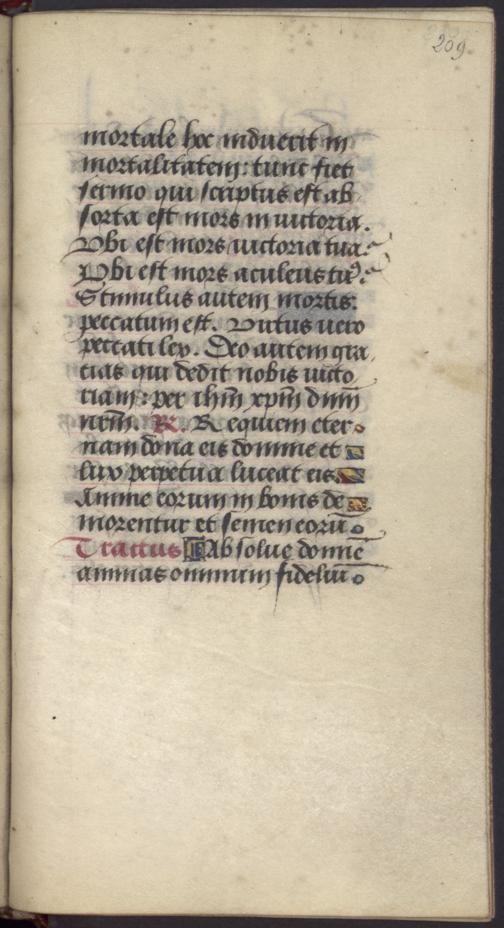 209
mortale hoc induerit in
mortalitatem: tunc fiet
sermo qui scriptus est ab
sorta est mors in victoria.
Vbi est mors victoria tua?
Vbi est mors aculeus tu9?
Stimulus autem mortis:
peccatum est. Virtus vero
peccati lex. Deo autem gra
cias qui dedit nobis victo
riam: per ihm xpm dnm
nrm. R. Requiem eter
nam dona eis domine et
lux perpetua luceat eis
Anime eorum in bonis de
morentur et semen eorū
Tractus Absolue domie
animas omnium fideliū